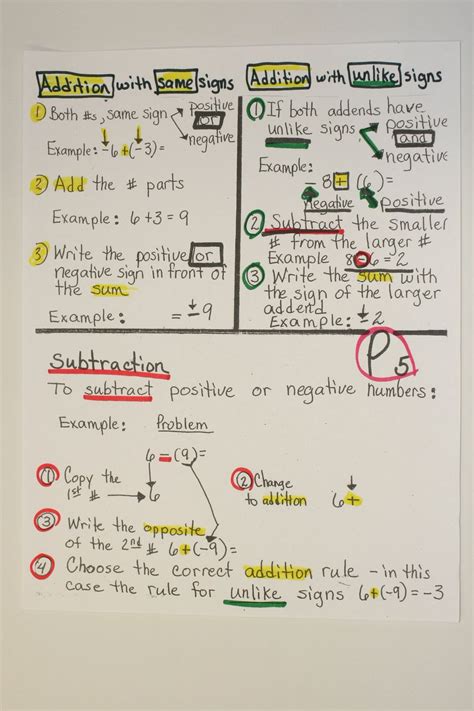 Addition with same signs
① Both #s, same sign
positive
or
negative
Example: -6+(-3)=
② Add the # parts
Example: 6+3=9
③ Write the positive or
negative sign in front of
the sum
Example: = -9
Addition with unlike signs
① If both addends have
unlike signs
positive
and
negative
Example:
-8+(6)=
negative positive
② Subtract the smaller
# from the larger #
Example 8-6=2
③ Write the sum with
the sign of the larger
addend
Example: -2
P5
Subtraction
To subtract positive or negative numbers:
Example: Problem
6-(9)=
① Copy the
1st # → 6
② Change
to addition 6+
③ Write the opposite
of the 2nd # 6+(-9)=
④ Choose the correct addition rule - in this
case the rule for unlike signs 6+(-9)=-3